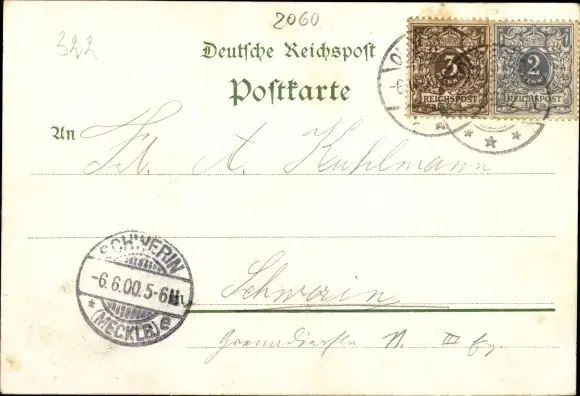 2060
322
Deutsche Reichspost
Postkarte
3
REICHSPOST
2
REICHSPOST
An Frl. A. Kuhlmann
SCHWERIN
-6.6.00.5-6N.
(MECKLB) e
Schwerin
III